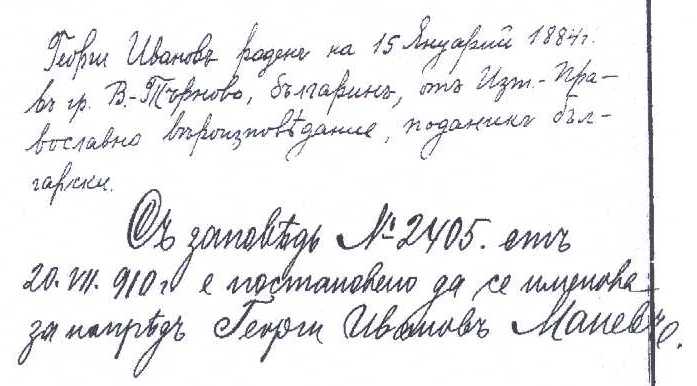 Георги Ивановъ роденъ на 15 Януарий 1884 г.
въ гр. В.-Търново, българинъ, отъ Изт.-Пра-
вославно вѣроизповѣдание, поданикъ бъл-
гарски.
Съ заповѣдь № 2405. отъ
20. VII. 910 г. е постановено да се именова
занапрѣдъ Георги Ивановъ Маневъ.